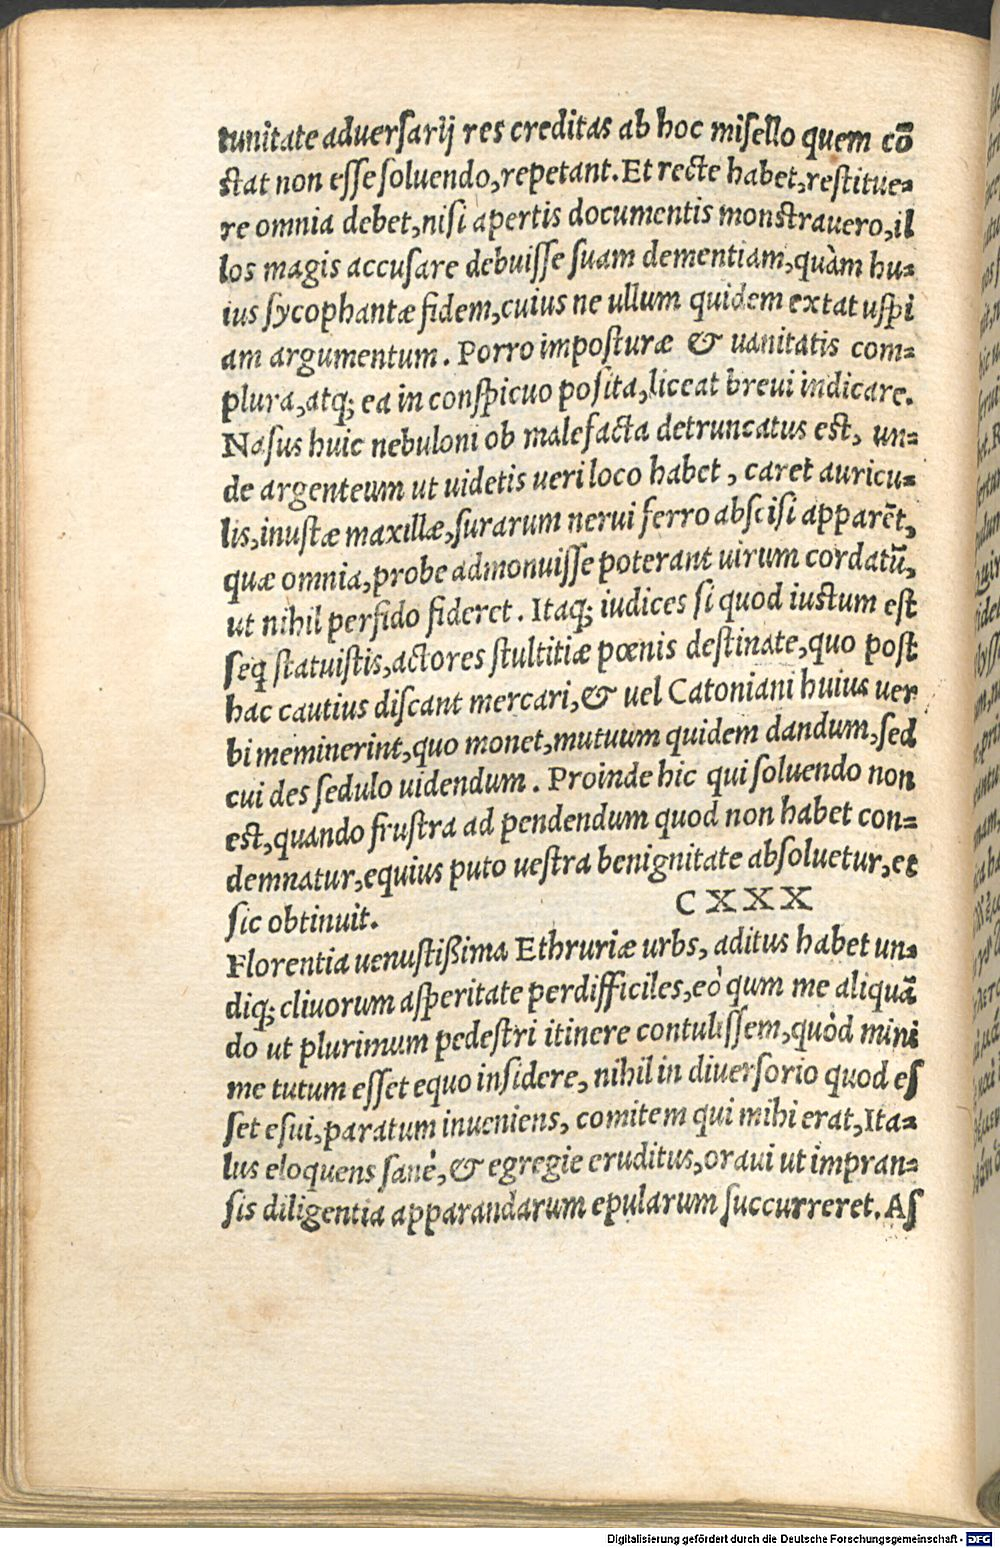 tunitate aduersarij res creditas ab hoc misello quem cō
stat non esse soluendo, repetant. Et recte habet, restitue=
re omnia debet, nisi apertis documentis monstrauero, il
los magis accusare debuisse suam dementiam, quàm hu=
ius sycophantæ fidem, cuius ne ullum quidem extat uspi
am argumentum. Porro imposturæ & uanitatis com=
plura, atq; ea in conspicuo posita, liceat breui indicare.
Nasus huic nebuloni ob malefacta detruncatus est, un=
de argenteum ut uidetis ueri loco habet, caret auricu=
lis, inustæ maxillæ, surarum nerui ferro abscisi apparēt,
quæ omnia, probe admonuisse poterant uirum cordatū,
ut nihil perfido fideret. Itaq; iudices si quod iustum est
seq statuistis, actores stultitiæ pœnis destinate, quo post
hac cautius discant mercari, & uel Catoniani huius uer
bi meminerint, quo monet, mutuum quidem dandum, sed
cui des sedulo uidendum. Proinde hic qui soluendo non
est, quando frustra ad pendendum quod non habet con=
demnatur, equius puto uestra benignitate absoluetur, et
sic obtinuit.
CXXX
Florentia uenustißima Ethruriæ urbs, aditus habet un=
diq; cliuorum asperitate perdifficiles, eò qum me aliquā
do ut plurimum pedestri itinere contulissem, quòd mini
me tutum esset equo insidere, nihil in diuersorio quod es
set esui, paratum inueniens, comitem qui mihi erat, Ita=
lus eloquens sanè, & egregie eruditus, oraui ut impran=
sis diligentia apparandarum epularum succurreret. As
Digitalisierung gefördert durch die Deutsche Forschungsgemeinschaft - DFG